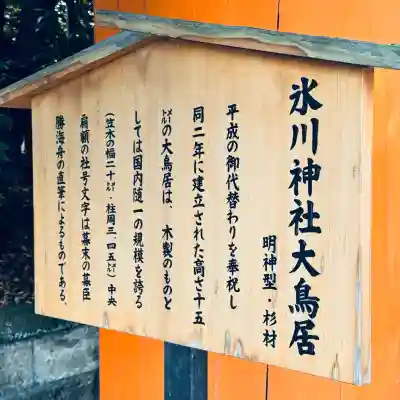 氷川神社大鳥居
明神型・杉材
平成の御代替わりを奉祝し
同二年に建立された高さ十五
メートルの大鳥居は、木製のものと
しては国内随一の規模を誇る
(笠木の幅二十メートル・柱周三.四五メートル)中央
扁額の社号文字は幕末の幕臣
勝海舟の直筆によるものである。